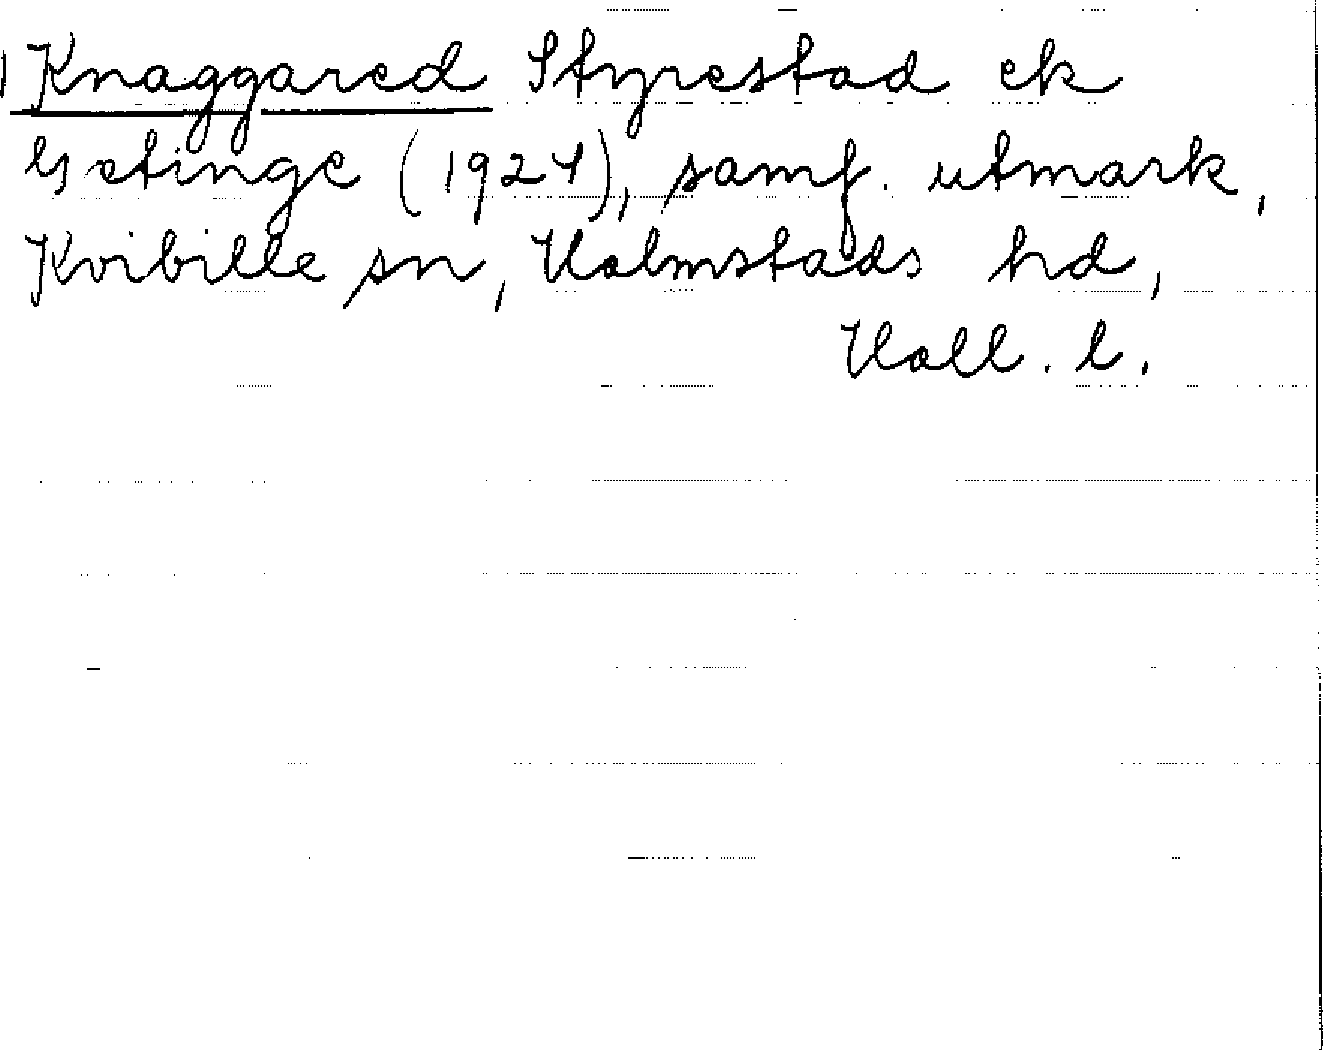 Knaggared Styrestad ek
Getinge (1924), samf. utmark,
Kvibille sn, Halmstads hd,
Hall. l.